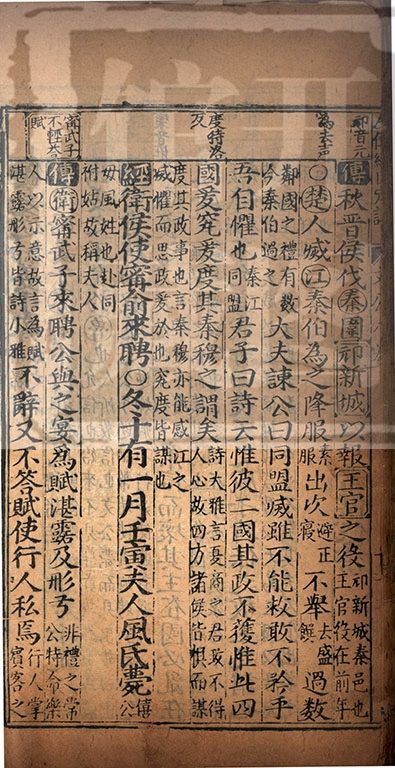 邧音元
為去聲
度待洛反
甯武子不輕答賦
傳秋晉侯伐秦圍邧新城以報王官之役邧新城秦邑也王官役在前年
○楚人滅江秦伯為之降服素服出次避正寢不舉去盛饌過數
鄰國之禮有數今秦伯過之大夫諫公曰同盟滅雖不能救敢不矜乎
吾自懼也秦江同盟君子曰詩云惟彼二國其政不獲惟此四
國爰究爰度其秦穆之謂矣詩大雅言夏商之君政不得人心故四方諸侯皆惧而謀
度其政事也言秦穆亦能感江之滅懼而思政爰於也究度皆謀也
經衛侯使甯俞來聘○冬十有一月壬寅夫人風氏薨僖公
母風姓也赴同祔姑故稱夫人
傳衛甯武子來聘公與之宴為賦湛露及彤弓非禮之常公特命樂
人以示意故言為賦湛露彤弓皆詩小雅不辭又不答賦使行人私焉行人掌賓客之